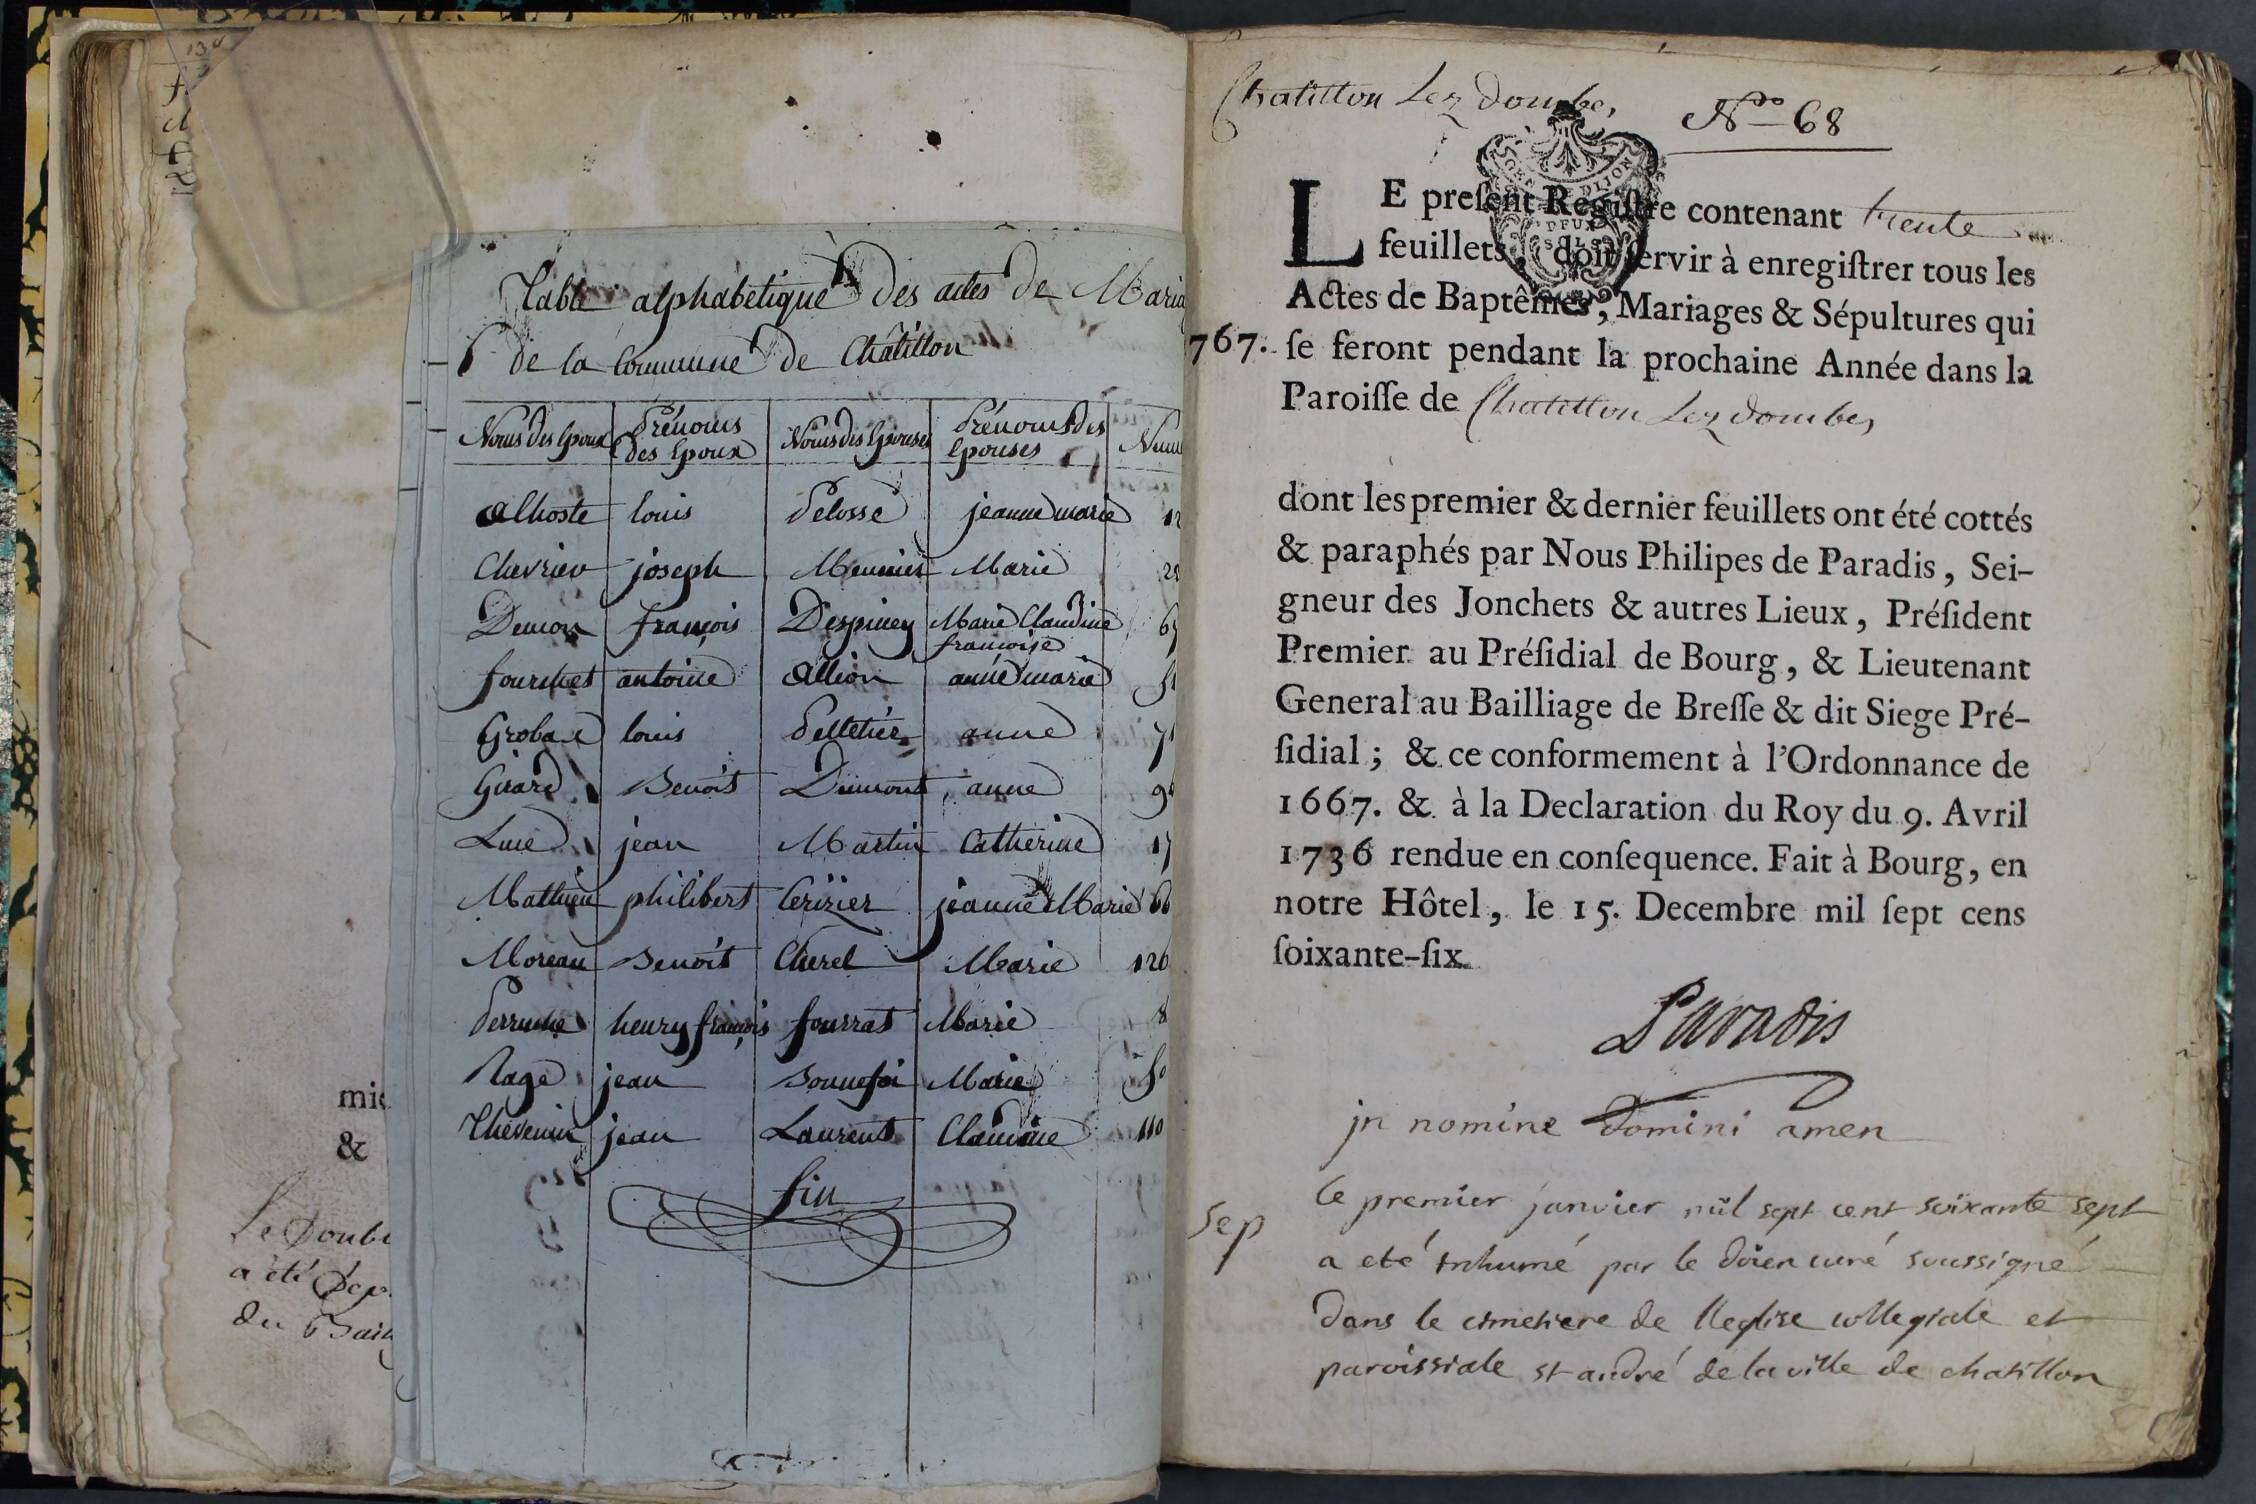 Table alphabetique des actes de Maria
de la Commune de Châtillon
Noms des Epoux Prénoms des Epoux Noms des Epouses Prénoms des Epouses Num
alhoste louis Pelosse jeanne marie 12
Chevrier joseph Meunier Marie
Demon françois Despiney Marie Claudine françoise
fourchet antoine allion anne marie
Grobard louis Pelletier anne
Girard Benoît Dumont anne
Luce jean Martin Catherine 17
Mathieu philibert Cerizier jeanne Marie 66
Moreau Benoît Cherel Marie 126
Perruche henry françois fourrat Marie 8
Rage jean Bonnefoi Marie
Thévenin jean Laurent Claudine 110
fin
mie
&
Le Doubl
a été Dep
du Bail
Chatillon Lez dombes
N° 68
LE preſent Regiſtre contenant trente
feuillets, doit ſervir à enregiſtrer tous les
Actes de Baptêmes, Mariages & Sépultures qui
767. ſe feront pendant la prochaine Année dans la
Paroiſſe de Chatillon Lez dombes
dont les premier & dernier feuillets ont été cottés
& paraphés par Nous Philipes de Paradis, Sei-
gneur des Jonchets & autres Lieux, Préſident
Premier au Préſidial de Bourg, & Lieutenant
General au Bailliage de Breſſe & dit Siege Pré-
ſidial; & ce conformement à l'Ordonnance de
1667. & à la Declaration du Roy du 9. Avril
1736 rendue en conſequence. Fait à Bourg, en
notre Hôtel, le 15. Decembre mil ſept cens
ſoixante-ſix.
Paradis
jn nomine Domini amen
Sep
le premier janvier mil sept cent soixante sept
a eté inhumé par le doien curé soussigné
dans le cimetiere de l'eglise collegiale et
paroissiale st andré de la ville de chatillon